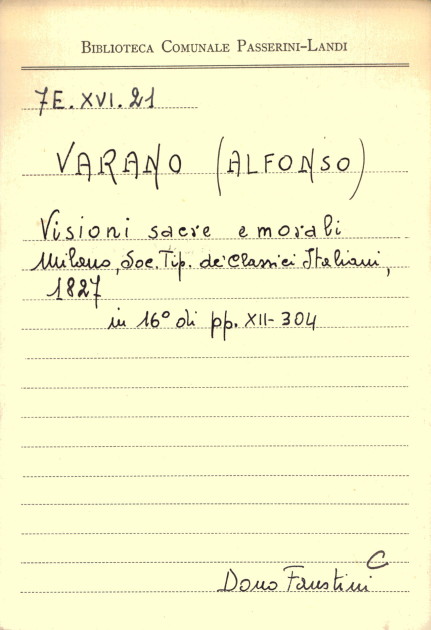 BIBLIOTECA COMUNALE PASSERINI-LANDI
7E.XVI.21
VARANO (ALFONSO)
Visioni sacre e morali
Milano, Soc. Tip. de' Classici Italiani,
1827
in 16° di pp. XII-304
C
Dono Faustini